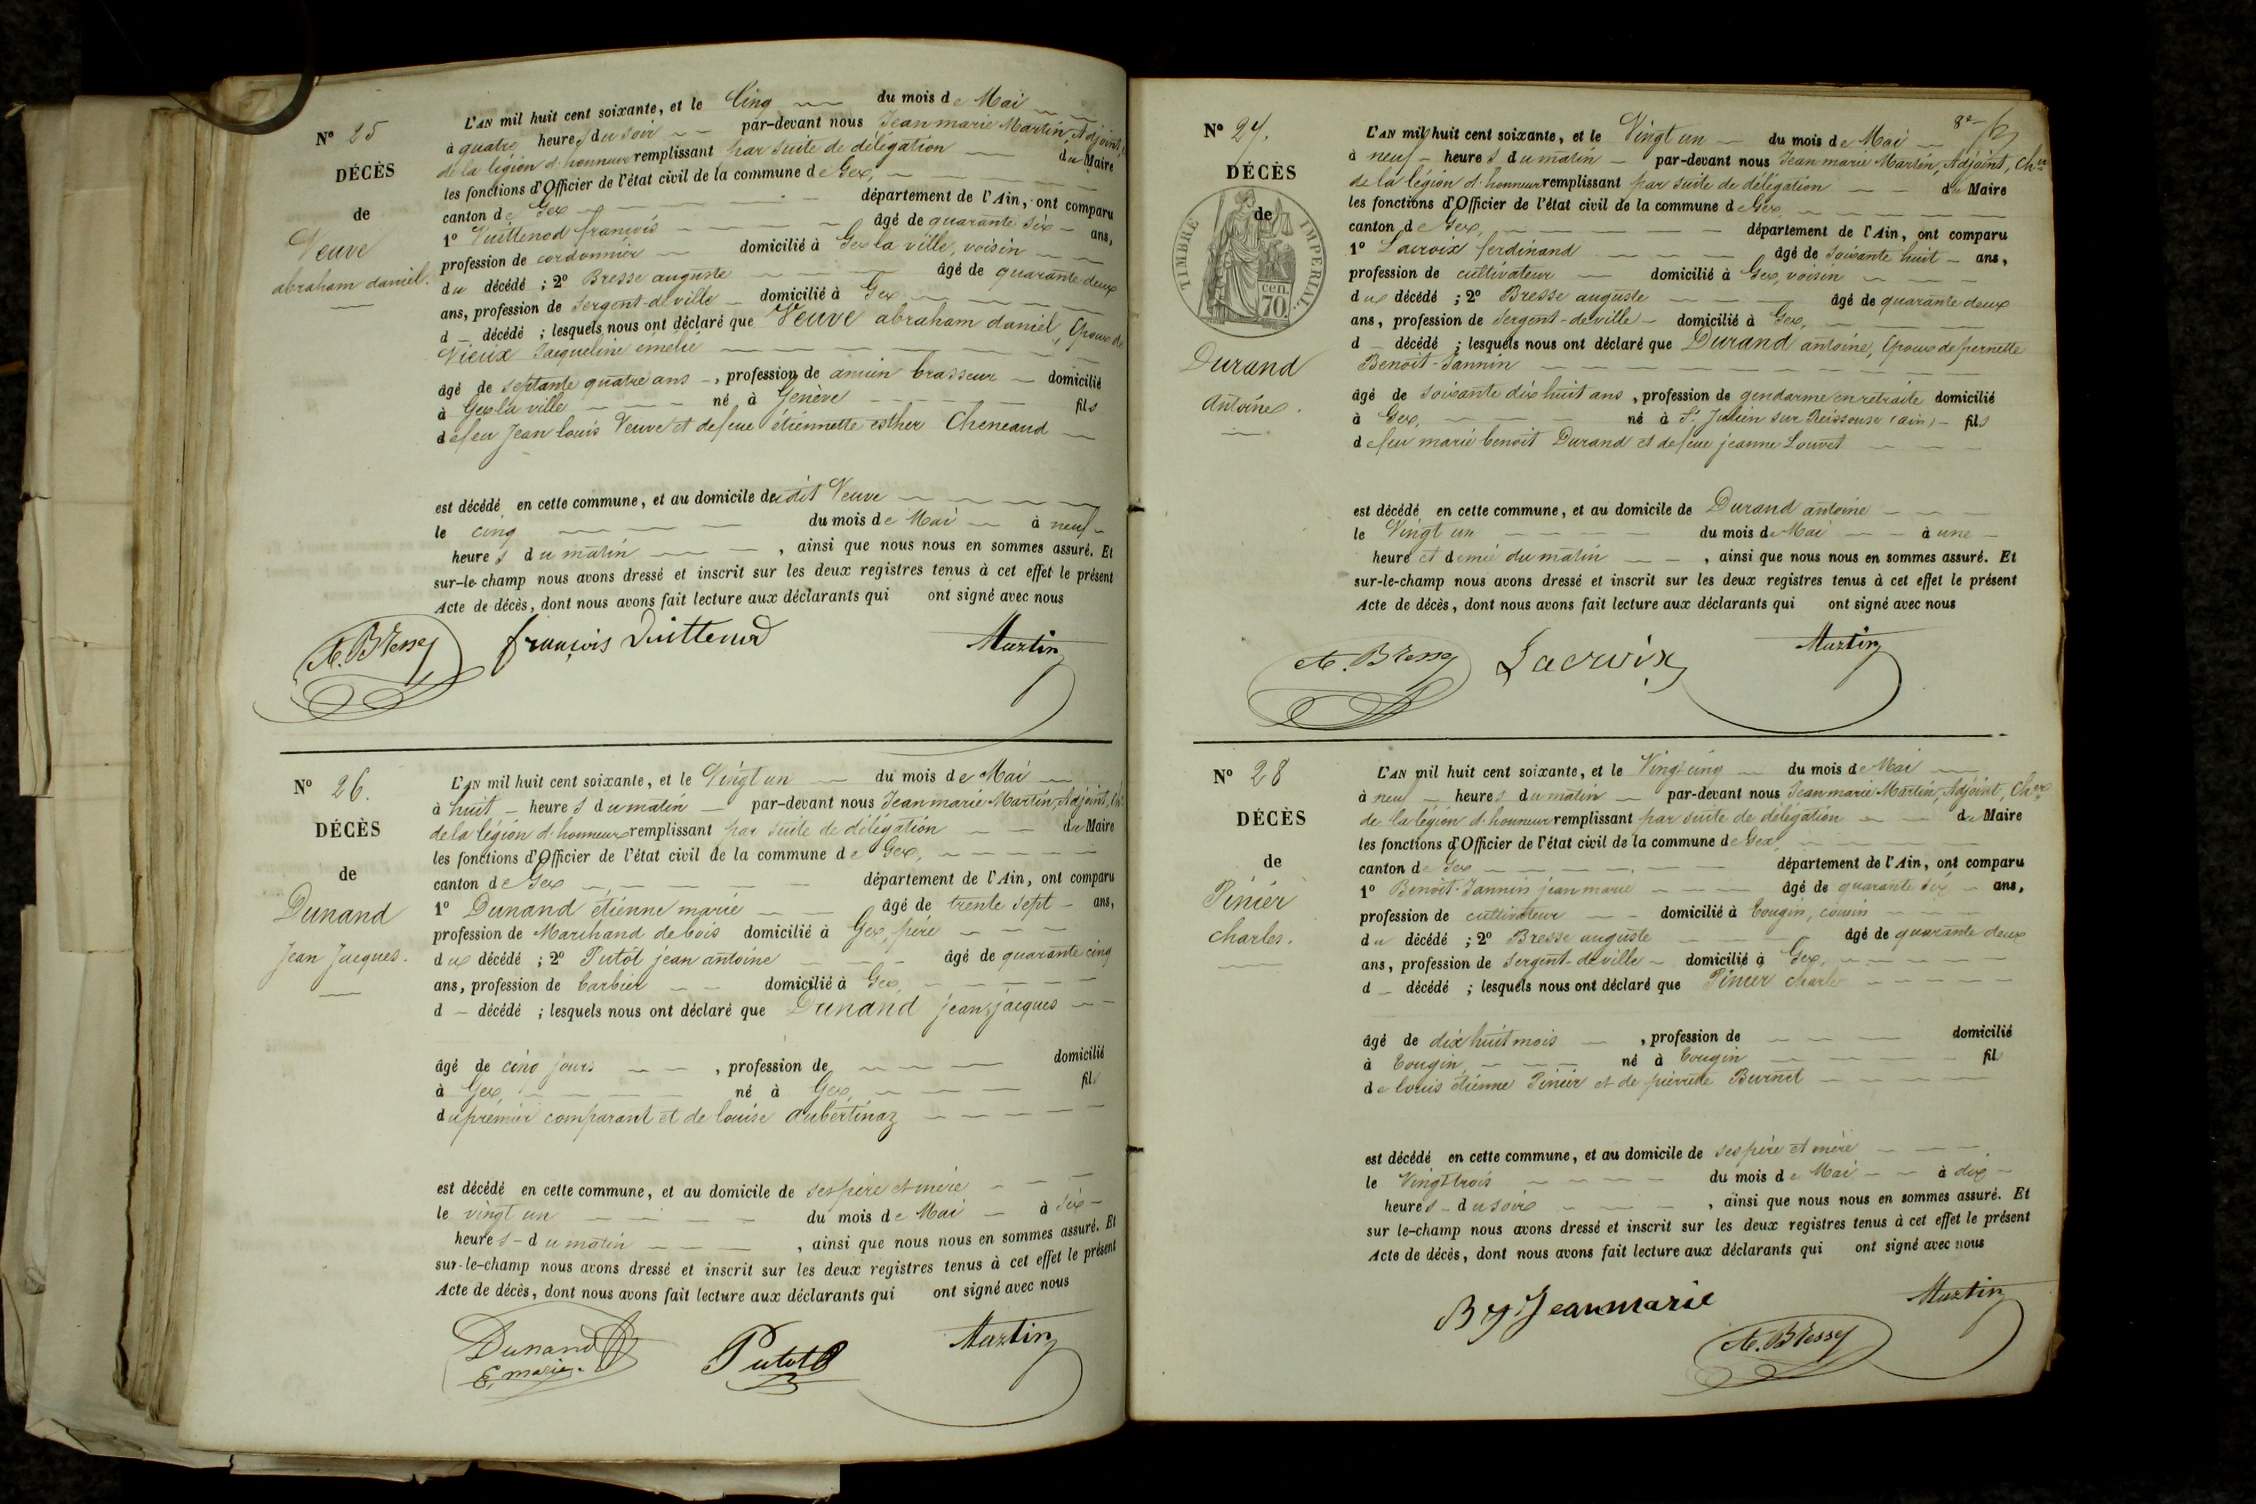 N° 25
DÉCÈS
de
Veuve
abraham daniel.
L'AN mil huit cent soixante, et le Cinq du mois de Mai
à quatre heures du soir par-devant nous Jean marie Martin, Adjoint,
de la légion d'honneur remplissant par suite de délégation du Maire
les fonctions d'Officier de l'état civil de la commune de Gex,
canton de Gex département de l'Ain, ont comparu
1° Vuittenod françois âgé de quarante six ans,
profession de cordonnier domicilié à Gex la ville, voisin
du décédé ; 2° Bresse auguste âgé de quarante deux
ans, profession de Sergent-de ville domicilié à Gex,
d décédé ; lesquels nous ont déclaré que Veuve abraham daniel, Epoux de
Vieux Jacqueline emélie
âgé de septante quatre ans, profession de ancien brasseur domicilié
à Gex la ville né à Genève fils
de feu Jean louis Veuve et de feue étiennette esther Cheneaud
est décédé en cette commune, et au domicile du dit Veuve
le cinq du mois de Mai à neuf
heures du matin, ainsi que nous nous en sommes assuré. Et
sur-le-champ nous avons dressé et inscrit sur les deux registres tenus à cet effet le présent
Acte de décès, dont nous avons fait lecture aux déclarants qui ont signé avec nous
A. Bresse françois Vuittenod Martin
N° 26.
DÉCÈS
de
Dunand
Jean Jacques.
L'AN mil huit cent soixante, et le Vingt un du mois de Mai
à huit heures du matin par-devant nous Jean marie Martin, Adjoint, Ch
de la légion d'honneur remplissant par suite de délégation du Maire
les fonctions d'Officier de l'état civil de la commune de Gex,
canton de Gex département de l'Ain, ont comparu
1° Dunand etienne marie âgé de trente sept ans,
profession de Marchand de bois domicilié à Gex, père
du décédé ; 2° Putôt jean antoine âgé de quarante cinq
ans, profession de barbier domicilié à Gex,
d décédé ; lesquels nous ont déclaré que Dunand jean jacques
âgé de cinq jours, profession de domicilié
à Gex, né à Gex, fils
du premier comparant et de louise aubertinaz
est décédé en cette commune, et au domicile de ses père et mère
le vingt un du mois de Mai à six
heures du matin, ainsi que nous nous en sommes assuré. Et
sur-le-champ nous avons dressé et inscrit sur les deux registres tenus à cet effet le présent
Acte de décès, dont nous avons fait lecture aux déclarants qui ont signé avec nous
Dunand Putot Martin
E. marie.
8e
N° 27.
DÉCÈS
de
TIMBRE IMPÉRIAL.
cen.
70.
Durand
Antoine.
L'AN mil huit cent soixante, et le Vingt un du mois de Mai
à neuf heures du matin par-devant nous Jean marie Martin, Adjoint, Cher
de la légion d'honneur remplissant par suite de délégation du Maire
les fonctions d'Officier de l'état civil de la commune de Gex,
canton de Gex, département de l'Ain, ont comparu
1° Lacroix ferdinand âgé de soixante huit ans,
profession de cultivateur domicilié à Gex, voisin
du décédé ; 2° Bresse auguste âgé de quarante deux
ans, profession de Sergent-de ville domicilié à Gex,
d décédé ; lesquels nous ont déclaré que Durand antoine, Epoux de pernette
Benoit-Jannin
âgé de soixante dix huit ans, profession de gendarme en retraite domicilié
à Gex, né à St. Julien sur Reissouse (ain) fils
de feu marie benoit Durand et de feue jeanne Louvet
est décédé en cette commune, et au domicile de Durand antoine
le Vingt un du mois de Mai à une
heure et demie du matin, ainsi que nous nous en sommes assuré. Et
sur-le-champ nous avons dressé et inscrit sur les deux registres tenus à cet effet le présent
Acte de décès, dont nous avons fait lecture aux déclarants qui ont signé avec nous
A. Bresse Lacroix Martin
N° 28
DÉCÈS
de
Pinier
charles.
L'AN mil huit cent soixante, et le Vingt cinq du mois de Mai
à neuf heures du matin par-devant nous Jean marie Martin, Adjoint, Cher
de la légion d'honneur remplissant par suite de délégation du Maire
les fonctions d'Officier de l'état civil de la commune de Gex,
canton de Gex département de l'Ain, ont comparu
1° Benoit-Jannin jean marie âgé de quarante six ans,
profession de cultivateur domicilié à Tougin, cousin
du décédé ; 2° Bresse auguste âgé de quarante deux
ans, profession de Sergent-de ville domicilié à Gex,
d décédé ; lesquels nous ont déclaré que Pinier charles
âgé de dix huit mois, profession de domicilié
à Tougin, né à Tougin fils
de louis étienne Pinier et de pierrette Burnet
est décédé en cette commune, et au domicile de ses père et mère
le Vingt trois du mois de Mai à dix
heures du soir, ainsi que nous nous en sommes assuré. Et
sur le-champ nous avons dressé et inscrit sur les deux registres tenus à cet effet le présent
Acte de décès, dont nous avons fait lecture aux déclarants qui ont signé avec nous
B J Jeanmarie Martin
A. Bresse